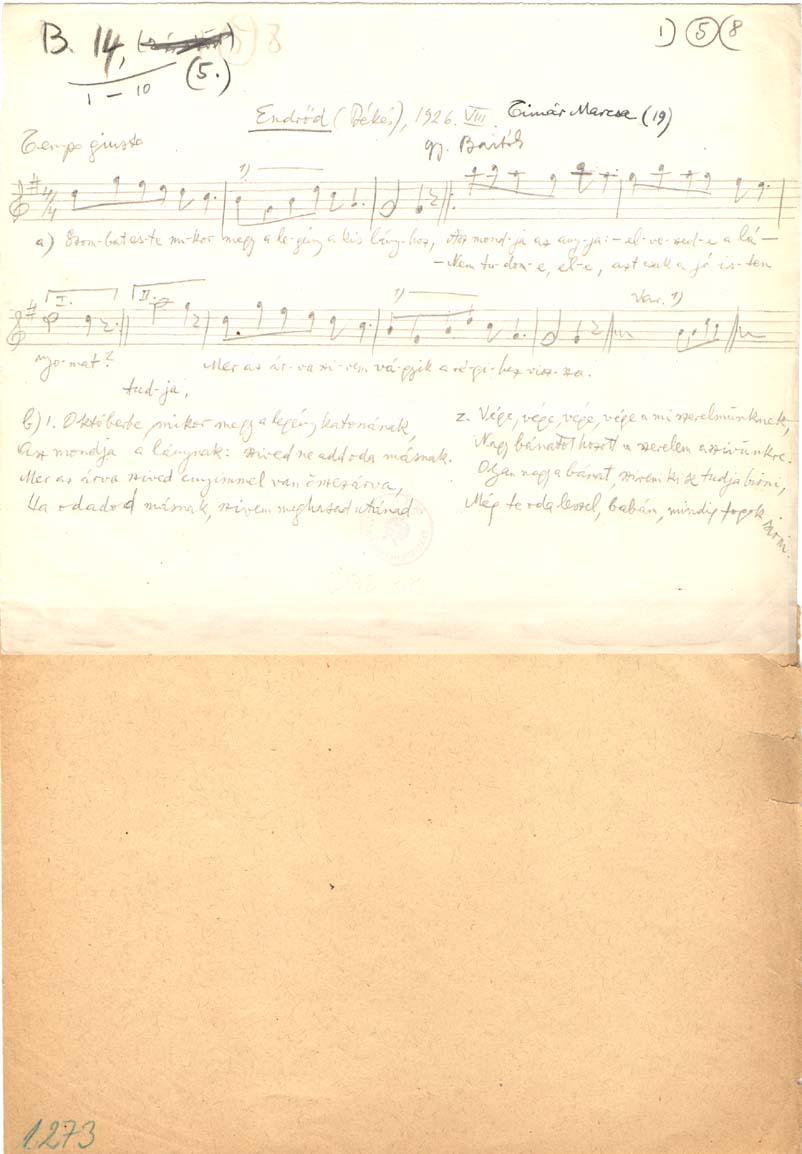 B. 14,
(5.)
1 – 10
1) 5 (8
Endrőd (Békés), 1926. VIII. Timár Marcsa (19)
gy. Bartók
Tempo giusto
1)
a) Szom-bat es-te mi-kor megy a le-gény a kis lány-hoz, Azt mond-ja az any-ja: – el-ve-szed-e a lá-
– Nem tu-dom-e, el-e, azt csak a jó is-ten
I. II. 1) Var. 1)
nyo-mat? Mer az ár-va szi-vem vá-gyik a ré-gi-hez visz-sza.
tud-ja,
b) 1. Októberbe, mikor megy a legény katonának,
Azt mondja a lánynak: szived ne add oda másnak.
Mer az árva szived enyimmel van összezárva,
Ha odadod másnak, szivem meghasad utánad
2. Vége, vége, vége, vége a mi szerelmünknek,
Nagy bánatot hozott a szerelem a szivünkre.
Olyan nagy a bánat, szivem ki se tudja birni,
Még te oda leszel, babám, mindig fogok sirni.
1273